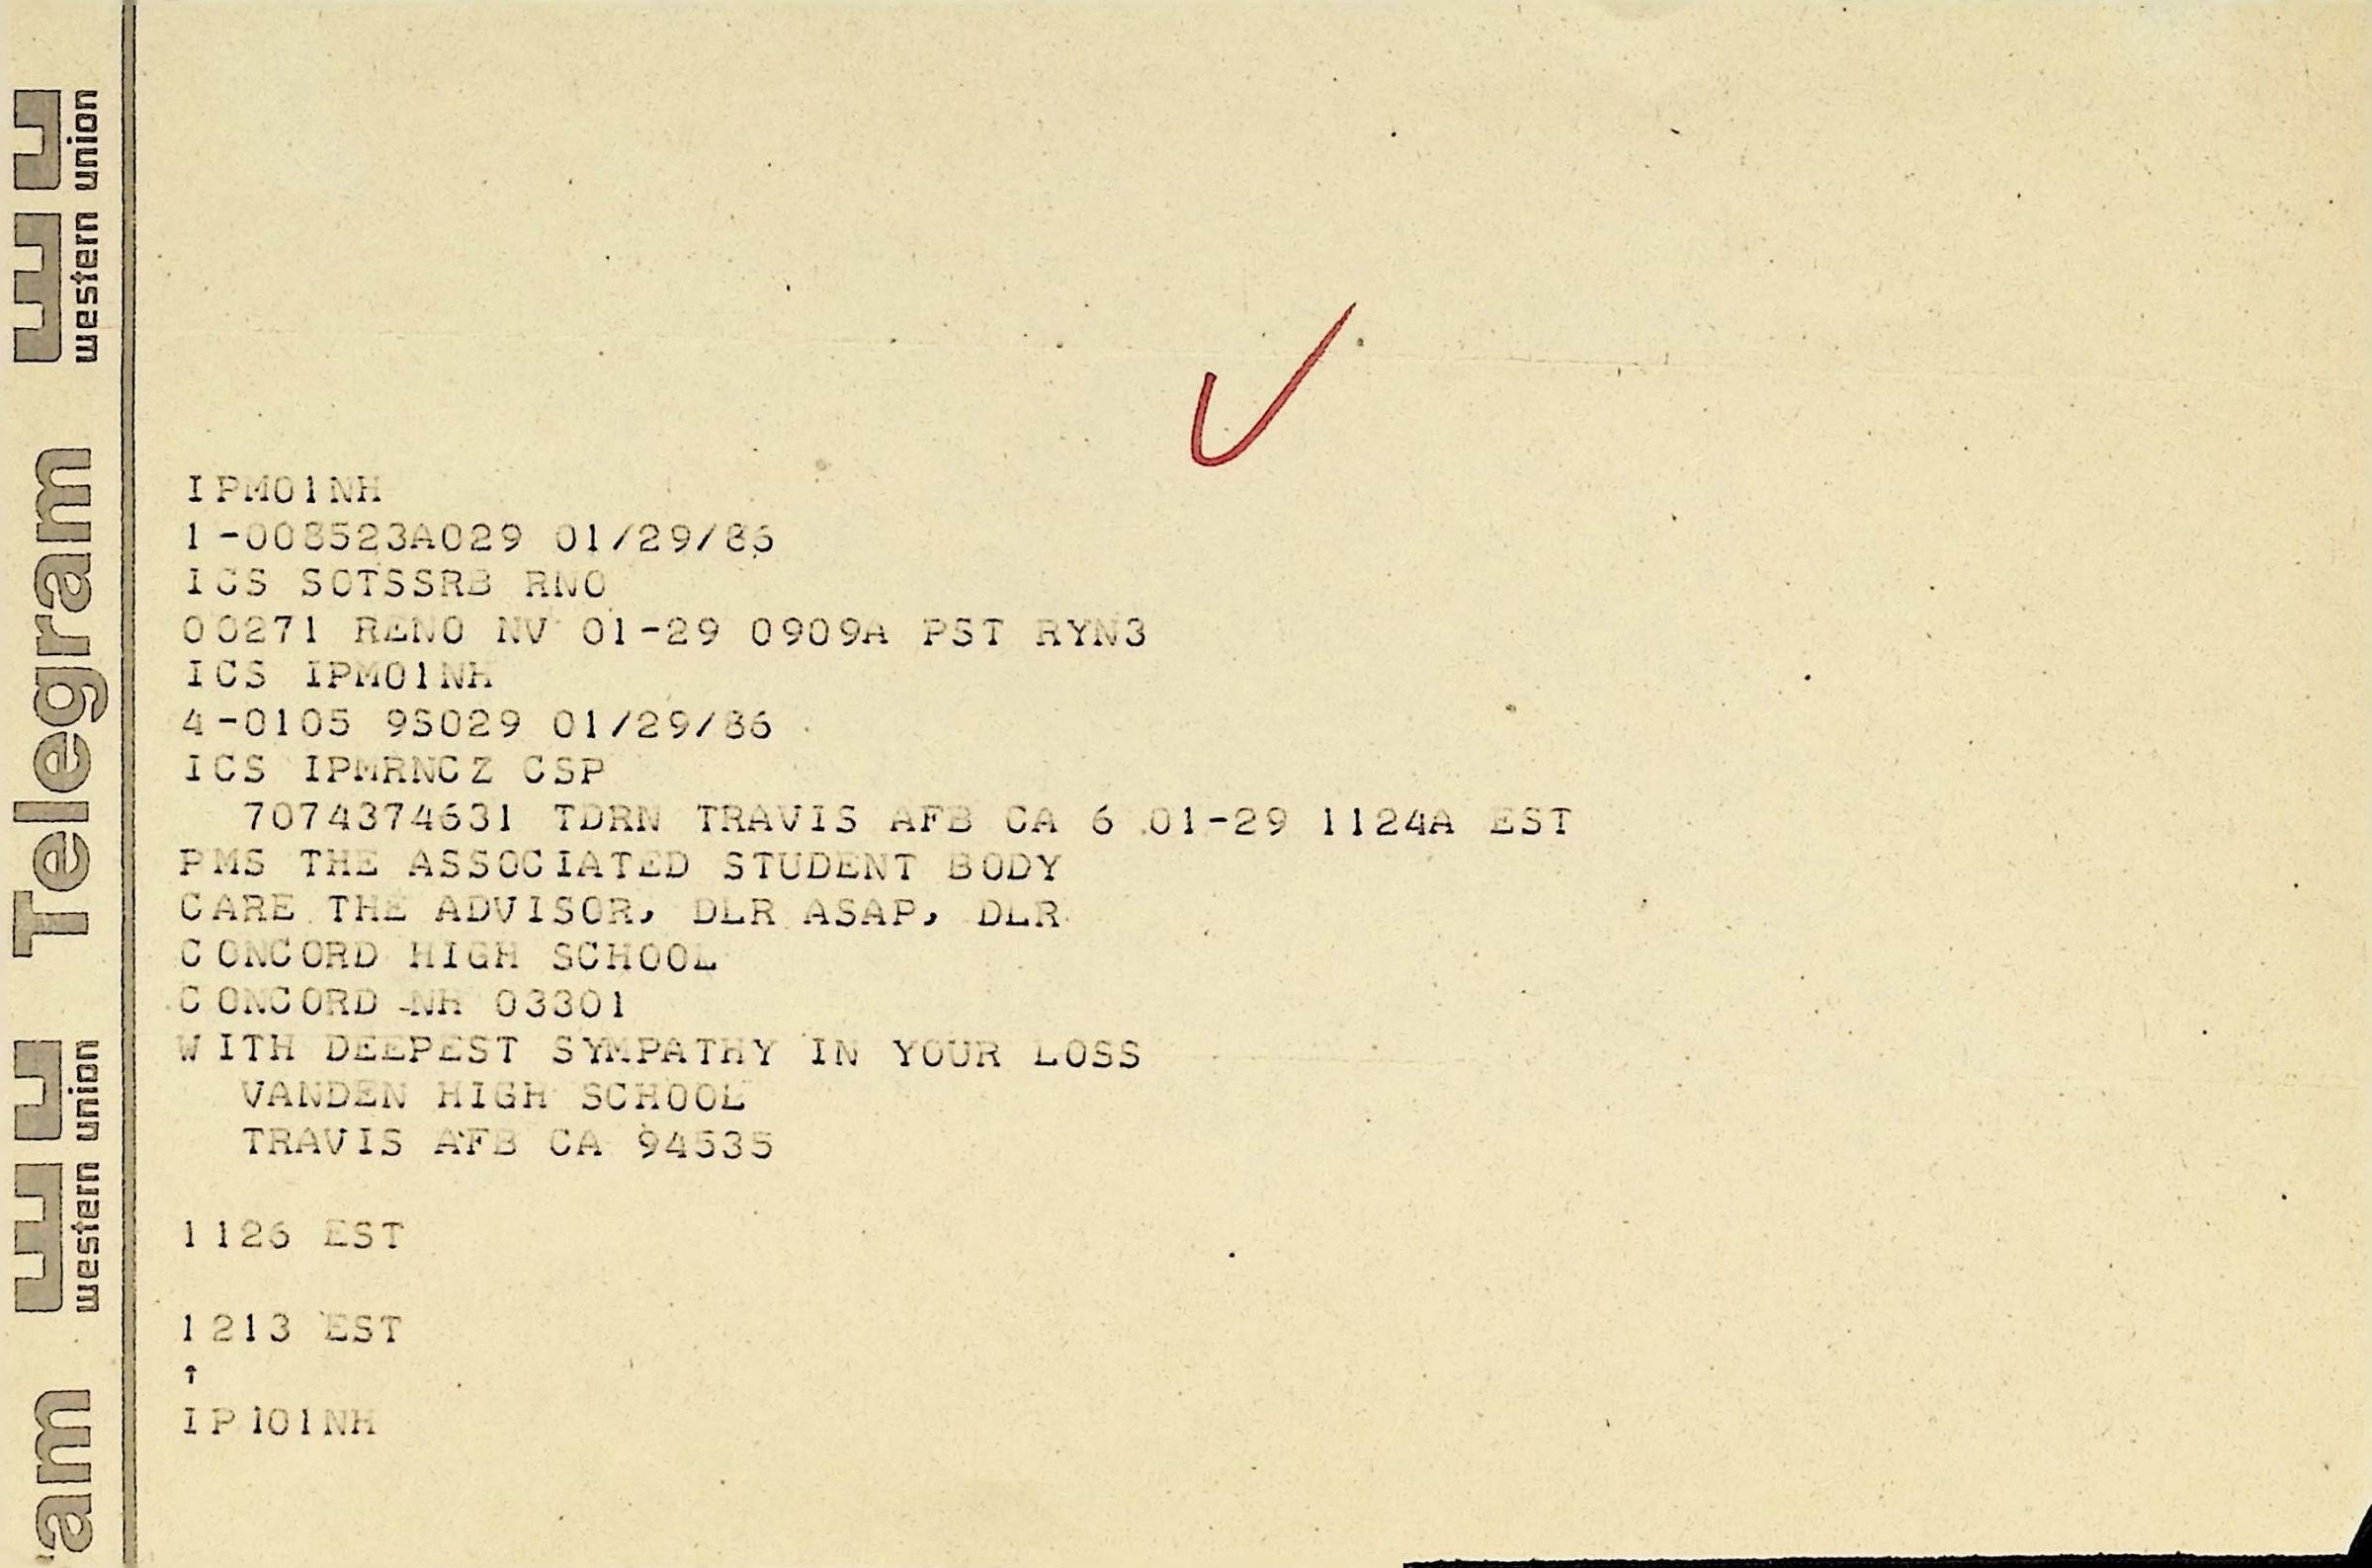 IPM01NH
1-008523A029 01/29/86
ICS SOTSSRB RNO
00271 RENO NV 01-29 0909A PST RYN3
ICS IPM01NH
4-0105 9S029 01/29/86
ICS IPMRNCZ CSP
7074374631 TDRN TRAVIS AFB CA 6 01-29 1124A EST
PMS THE ASSOCIATED STUDENT BODY
CARE THE ADVISOR, DLR ASAP, DLR
CONCORD HIGH SCHOOL
CONCORD NH 03301
WITH DEEPEST SYMPATHY IN YOUR LOSS
VANDEN HIGH SCHOOL
TRAVIS AFB CA 94535
1126 EST
1213 EST
↑
IP101NH
am
western union
Telegram
western union